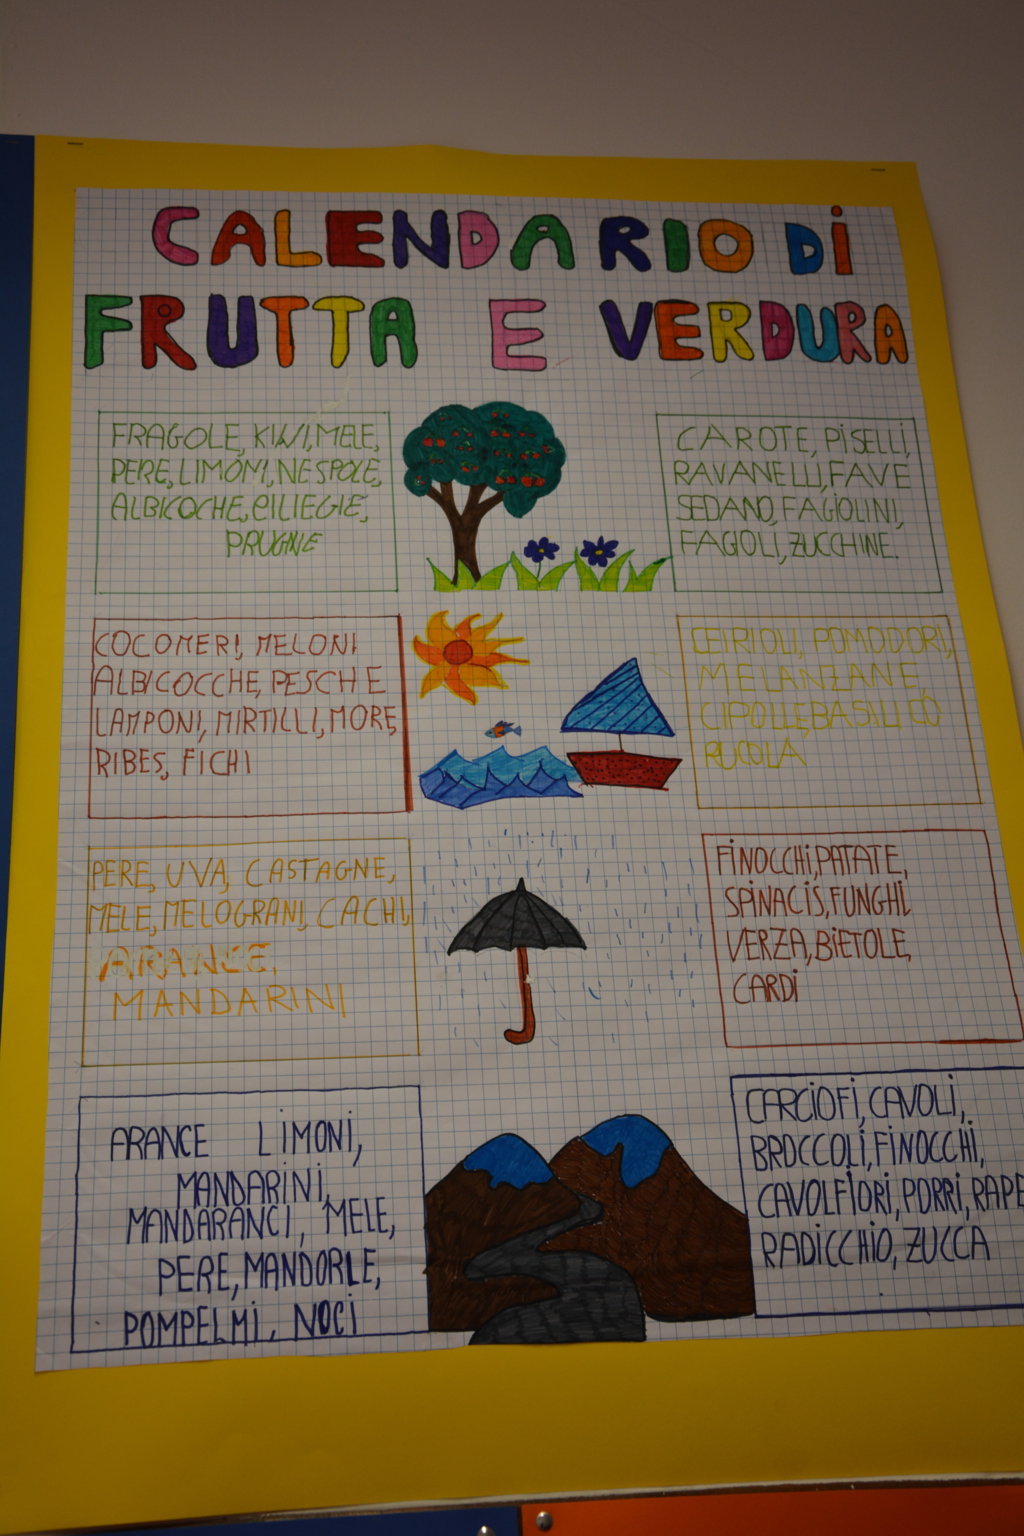 CALENDARIO DI
FRUTTA E VERDURA
FRAGOLE, KIWI, MELE,
PERE, LIMONI, NESPOLE,
ALBICOCHE, CILIEGIE,
PRUGNE
CAROTE, PISELLI,
RAVANELLI, FAVE
SEDANO, FAGIOLINI,
FAGIOLI, ZUCCHINE.
COCOMERI, MELONI
ALBICOCCHE, PESCHE
LAMPONI, MIRTILLI, MORE,
RIBES, FICHI
CEIRIOLI, POMODORI,
MELANZANE,
CIPOLLE, BASILICO
RUCOLA
PERE, UVA, CASTAGNE,
MELE, MELOGRANI, CACHI,
ARANCE,
MANDARINI
FINOCCHI, PATATE,
SPINACIS, FUNGHI
VERZA, BIETOLE,
CARDI
ARANCE LIMONI,
MANDARINI,
MANDARANCI, MELE,
PERE, MANDORLE,
POMPELMI, NOCI
CARCIOFI, CAVOLI,
BROCCOLI, FINOCCHI,
CAVOLFIORI, PORRI, RAPE
RADICCHIO, ZUCCA